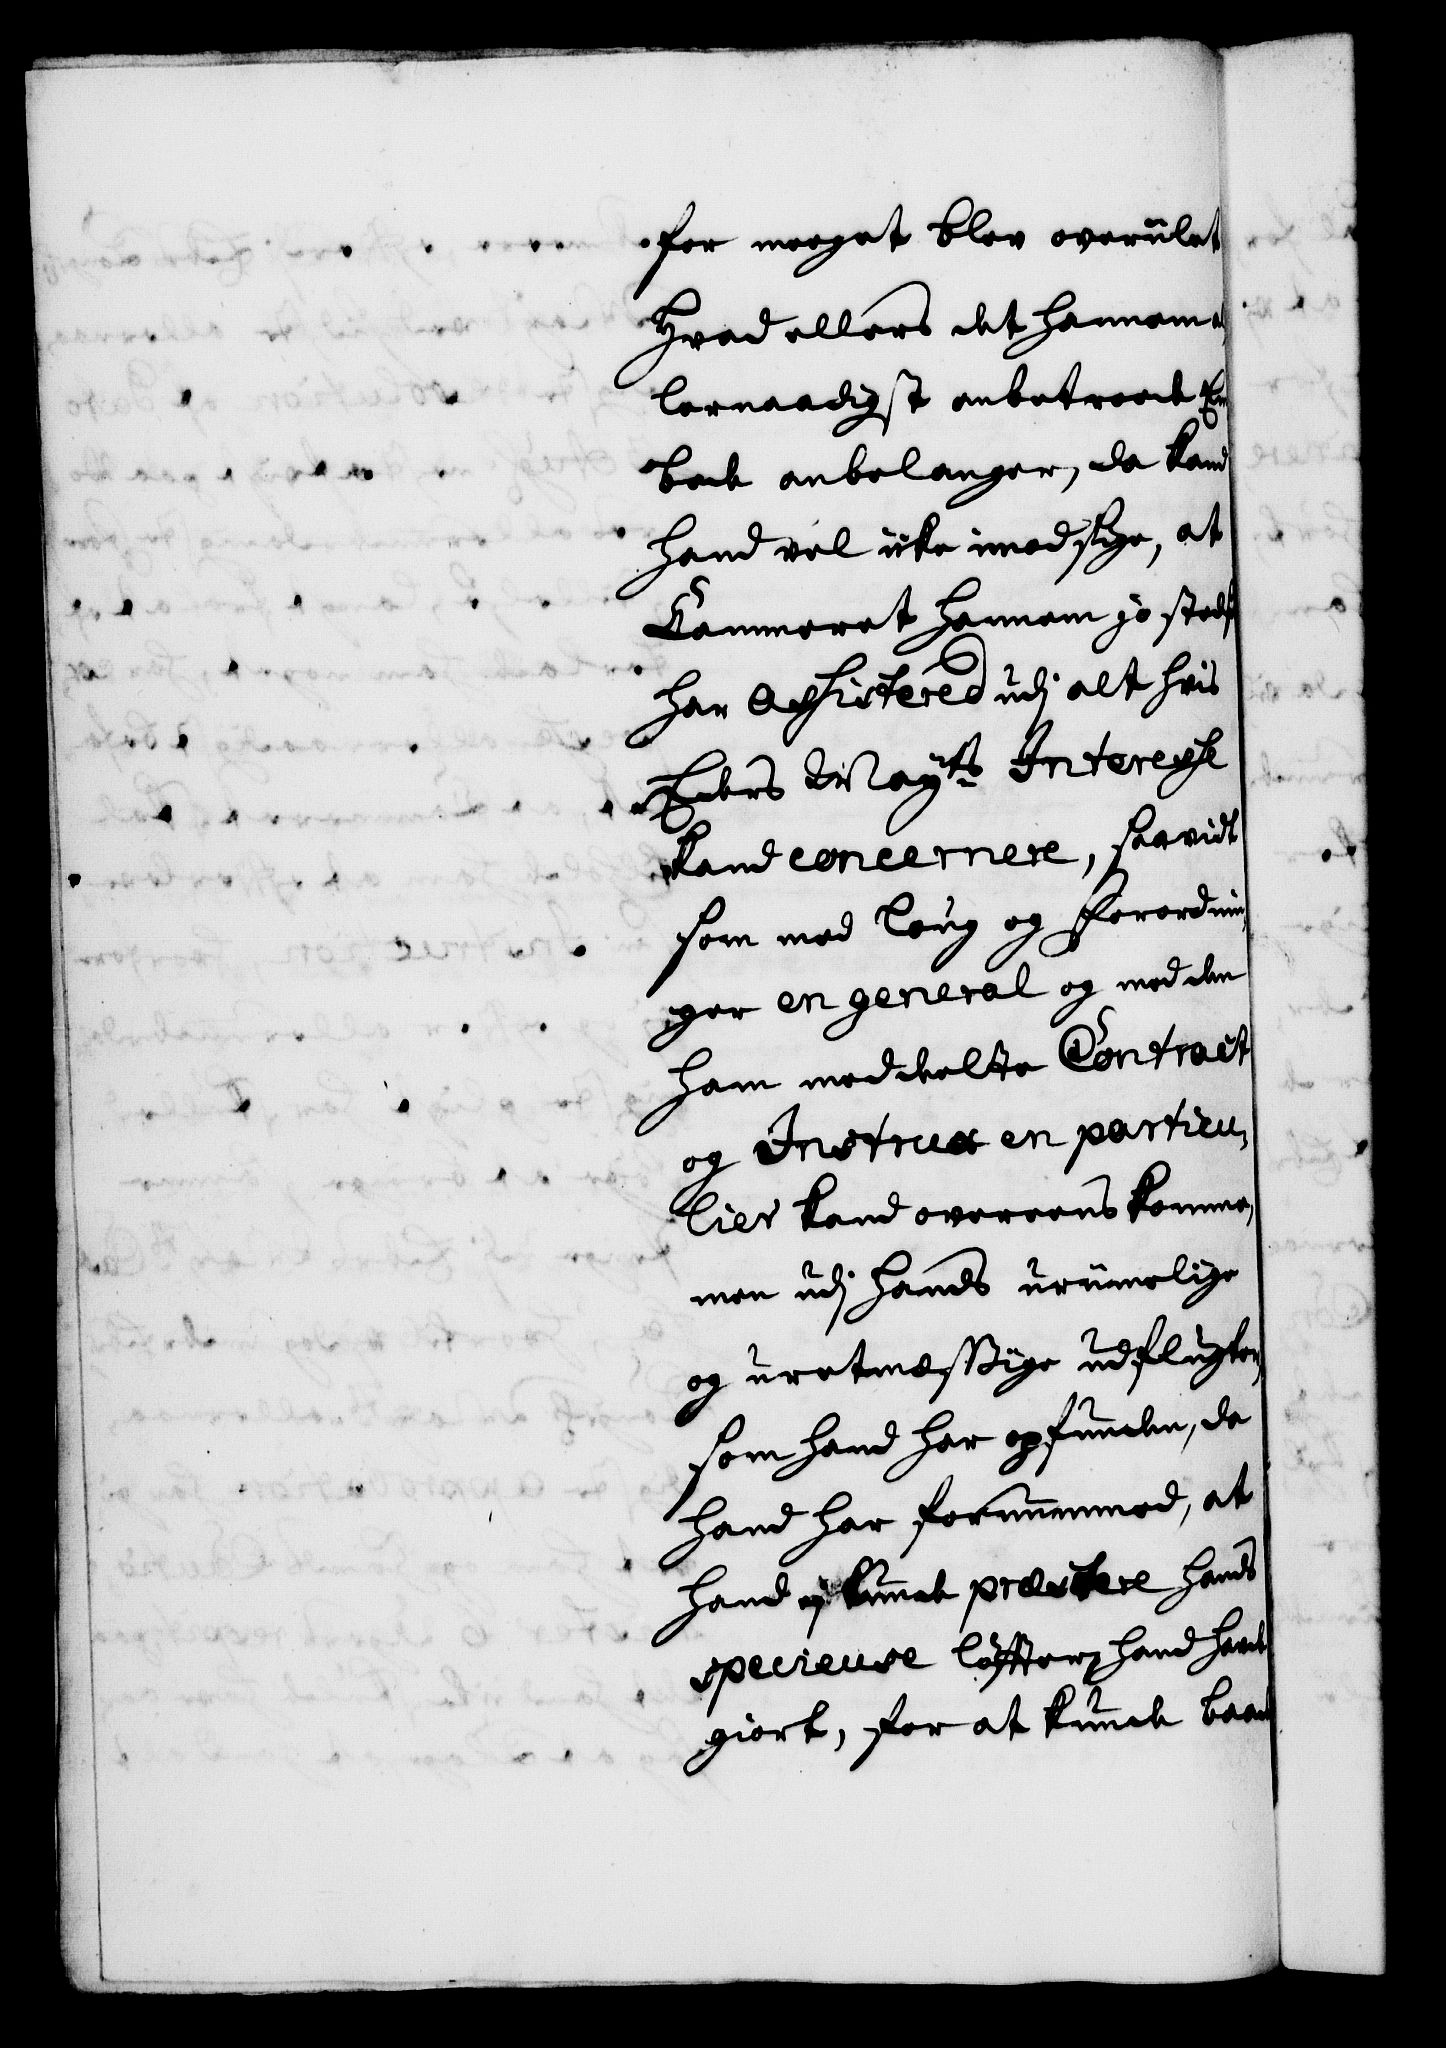 for meeget blev overiilet
Hvad ellers det hannem al,
lernaadigst anbetroede Em
bede anbelanger, da kand
hand vel icke imodsige, at
Cammeret hannem jo steds
har assistered udj alt hvis
Eders Mayts Interesse
kand concernere, saavidt
som med loug og forordnin,
ger en general og med den
ham meddeelte Contract
og Instrux en particu,
lier kand overeens komme,
men udj hands urümelige
og uretmessige udflugter,
som hand har opfunden, da
hand har fornummed, at
hand ej kunde præstere hands
specieuse løffter, hand hafde
giort, for at kunde